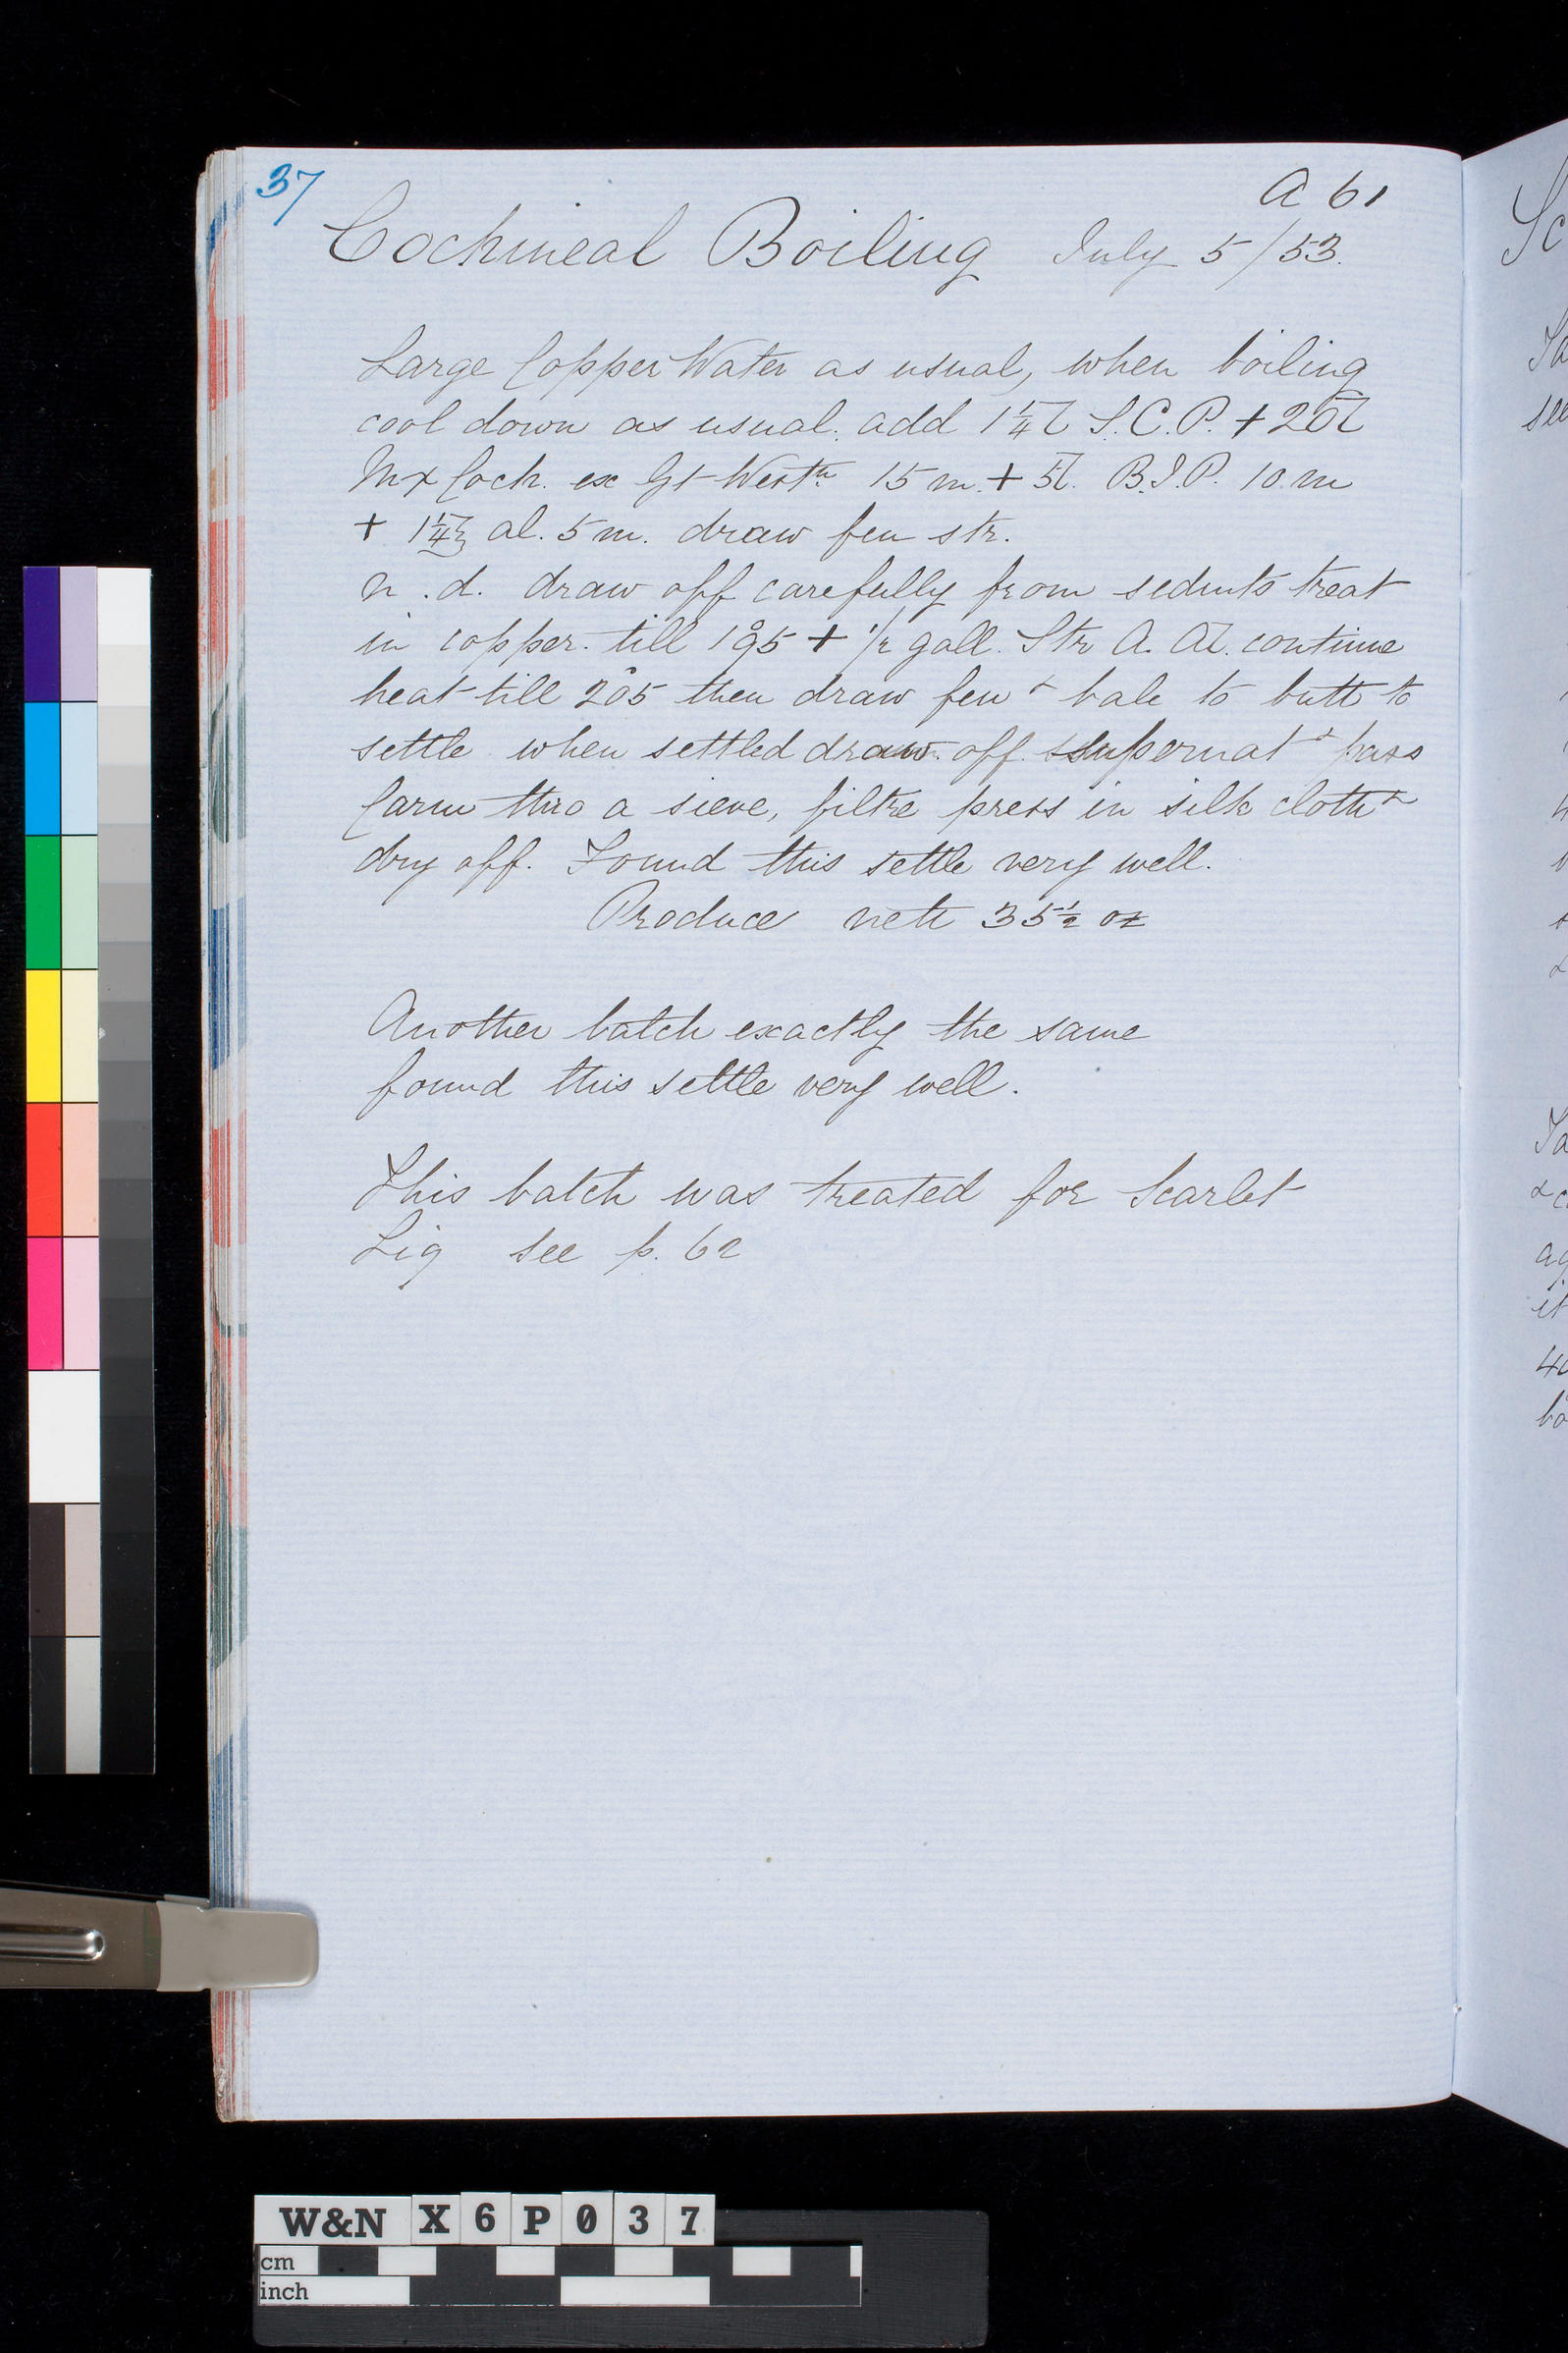 37
a 61
Cochineal Boiling July 5/53.
Large Copper Water as usual, when boiling
cool down as usual. add 1 1/4 ℔ S.C.P. + 20 ℔
Mx Coch. ex Gt West.n 15 m. + 5 ℔. B.I.P. 10. m
+ 1 1/4 ℥ al. 5 m. draw few str.
n. d. draw off carefully from sedmts treat
in copper. till 195° + 1/2 gall. Str A. continue
heat till 205° then draw few & bale to butt to
settle when settled draw. off. supernat & pass
Carm thro a sieve, filtre press in silk cloth &
dry off. Found this settle very well.
Produce nett 35 1/2 oz
Another batch exactly the same
found this settle very well.
This batch was treated for Scarlet
Liq see p. 62
Sc
W&N X 6 P 0 3 7
cm
inch